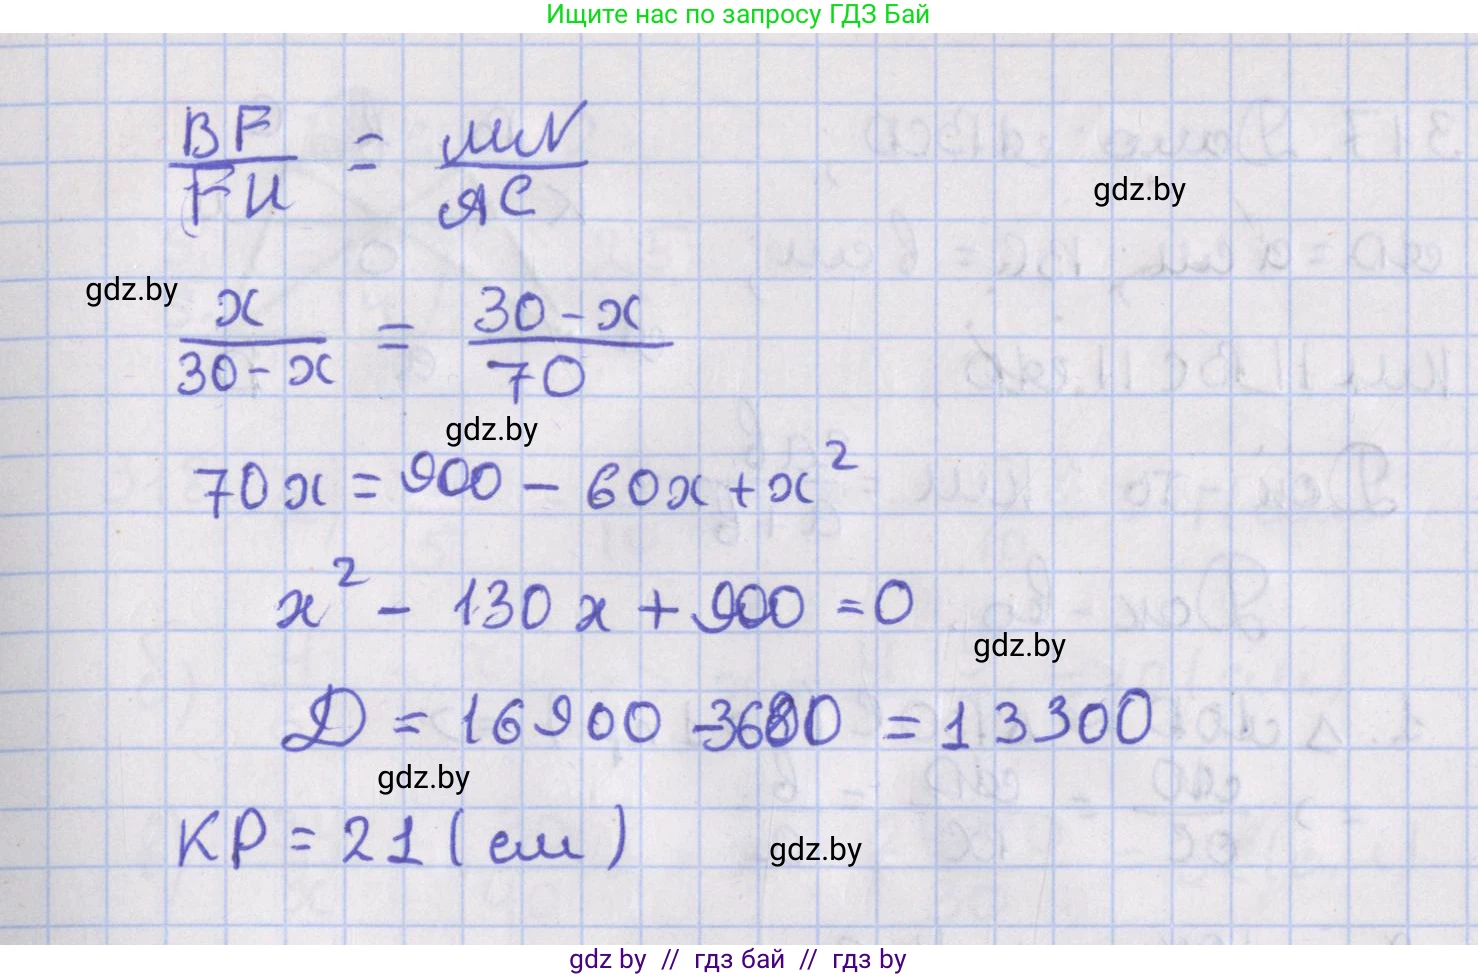 Ищите нас по запросу ГДЗ Бай
BF/FH = MN/AC
gdz.by
gdz.by
x/(30-x) = (30-x)/70
gdz.by
70x = 900 - 60x + x²
x² - 130x + 900 = 0
gdz.by
Д = 16900 - 3600 = 13300
gdz.by
KP = 21 (см)
gdz.by
gdz by // гдз бай // гдз by